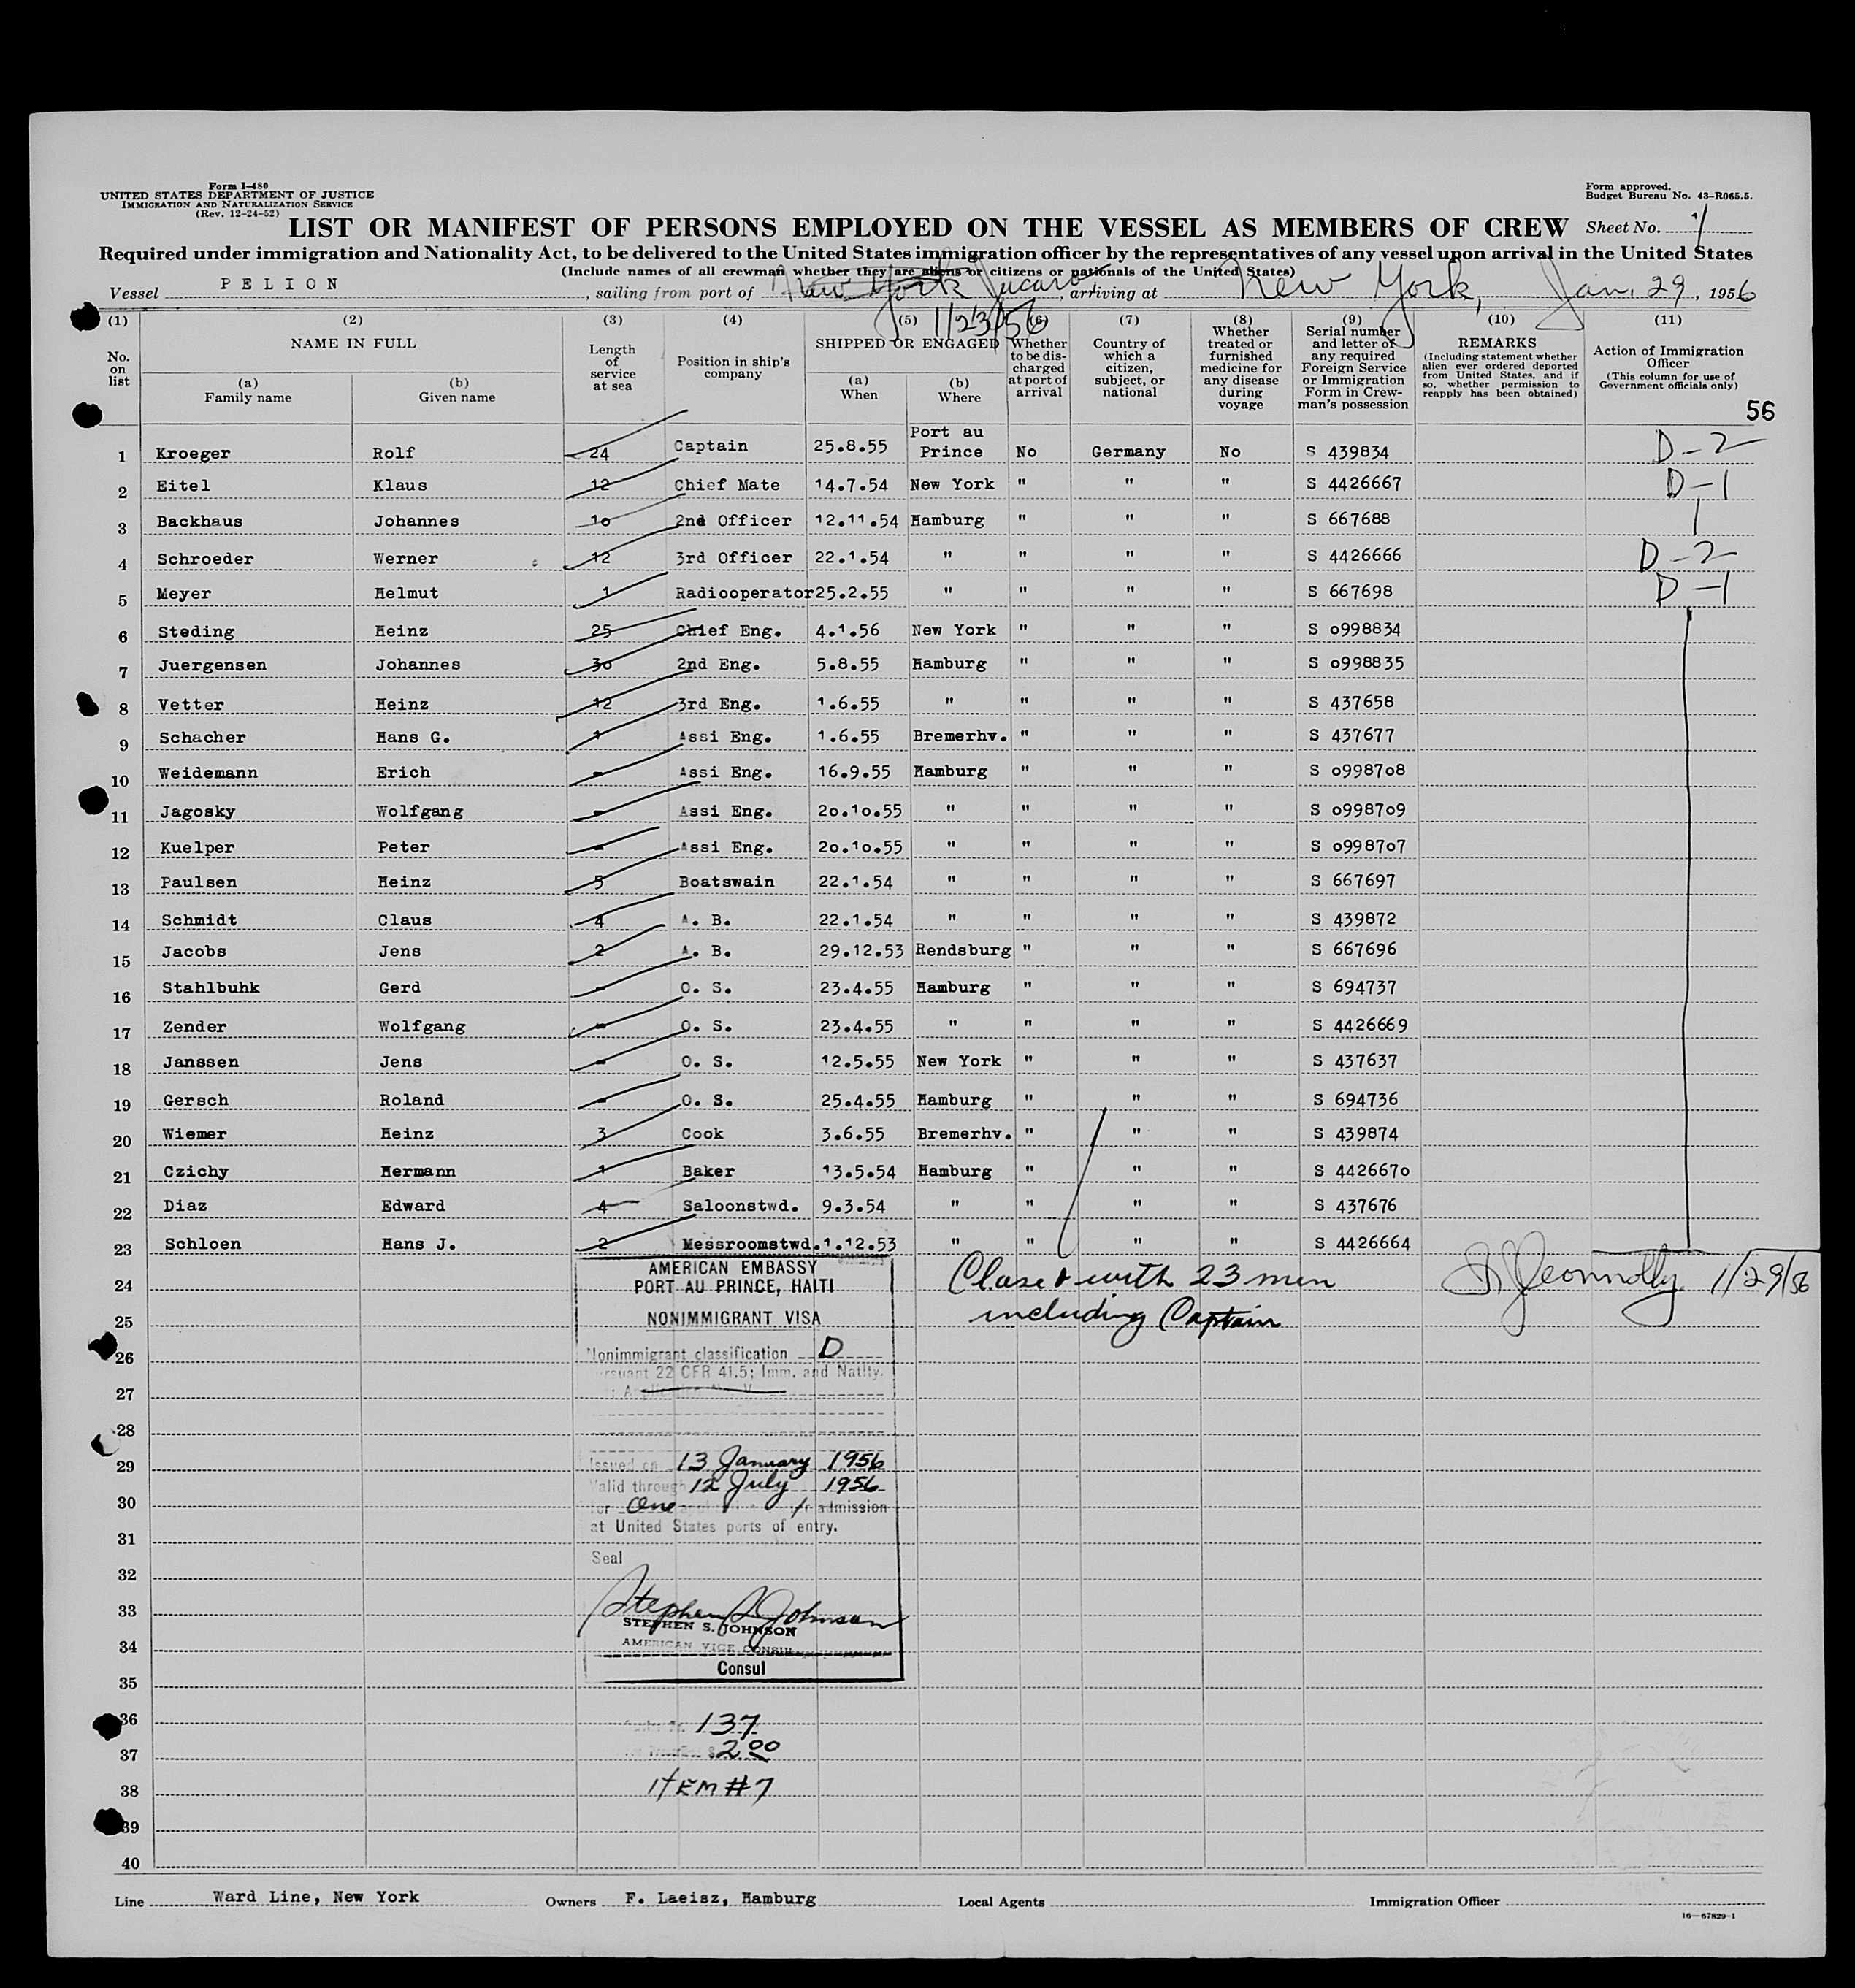 Form I-480
UNITED STATES DEPARTMENT OF JUSTICE
IMMIGRATION AND NATURALIZATION SERVICE
(Rev. 12-24-52)
Form approved.
Budget Bureau No. 43-R065.5.
LIST OR MANIFEST OF PERSONS EMPLOYED ON THE VESSEL AS MEMBERS OF CREW
Sheet No. 1
Required under immigration and Nationality Act, to be delivered to the United States immigration officer by the representatives of any vessel upon arrival in the United States
(Include names of all crewman whether they are aliens or citizens or nationals of the United States)
Vessel PELION, sailing from port of New York Jucaro, arriving at New York, Jan. 29, 1956
1/23/56
(1) (2) (3) (4) (5) (6) (7) (8) (9) (10) (11)
No. on list
NAME IN FULL
(a) Family name
(b) Given name
Length of service at sea
Position in ship's company
SHIPPED OR ENGAGED
(a) When
(b) Where
Whether to be discharged at port of arrival
Country of which a citizen, subject, or national
Whether treated or furnished medicine for any disease during voyage
Serial number and letter of any required Foreign Service or Immigration Form in Crewman's possession
REMARKS
(Including statement whether alien ever ordered deported from United States, and if so, whether permission to reapply has been obtained)
Action of Immigration Officer
(This column for use of Government officials only)
56
1 Kroeger Rolf 24 Captain 25.8.55 Port au Prince No Germany No S 439834 D-2
2 Eitel Klaus 12 Chief Mate 14.7.54 New York " " " S 4426667 D-1
3 Backhaus Johannes 10 2nd Officer 12.11.54 Hamburg " " " S 667688
4 Schroeder Werner 12 3rd Officer 22.1.54 " " " " S 4426666 D-2
5 Meyer Helmut 1 Radiooperator 25.2.55 " " " " S 667698 D-1
6 Steding Heinz 25 Chief Eng. 4.1.56 New York " " " S 0998834
7 Juergensen Johannes 30 2nd Eng. 5.8.55 Hamburg " " " S 0998835
8 Vetter Heinz 12 3rd Eng. 1.6.55 " " " " S 437658
9 Schacher Hans G. 1 Assi Eng. 1.6.55 Bremerhv. " " " S 437677
10 Weidemann Erich - Assi Eng. 16.9.55 Hamburg " " " S 0998708
11 Jagosky Wolfgang - Assi Eng. 20.10.55 " " " " S 0998709
12 Kuelper Peter - Assi Eng. 20.10.55 " " " " S 0998707
13 Paulsen Heinz 5 Boatswain 22.1.54 " " " " S 667697
14 Schmidt Claus 4 A. B. 22.1.54 " " " " S 439872
15 Jacobs Jens 2 A. B. 29.12.53 Rendsburg " " " S 667696
16 Stahlbuhk Gerd - O. S. 23.4.55 Hamburg " " " S 694737
17 Zender Wolfgang - O. S. 23.4.55 " " " " S 4426669
18 Janssen Jens - O. S. 12.5.55 New York " " " S 437637
19 Gersch Roland - O. S. 25.4.55 Hamburg " " " S 694736
20 Wiemer Heinz 3 Cook 3.6.55 Bremerhv. " " " S 439874
21 Czichy Hermann 1 Baker 13.5.54 Hamburg " " " S 4426670
22 Diaz Edward 4 Saloonstwd. 9.3.54 " " " " S 437676
23 Schloen Hans J. 2 Messroomstwd. 1.12.53 " " " " S 4426664
24
25
26
27
28
29
30
31
32
33
34
35
36
37
38
39
40
AMERICAN EMBASSY
PORT AU PRINCE, HAITI
NONIMMIGRANT VISA
Nonimmigrant classification D
22 CFR 41.5; Imm. and Natlty.
Issued on 13 January 1956
Valid through 12 July 1956
for One admission
at United States ports of entry.
Seal
Stephen S. Johnson
STEPHEN S. JOHNSON
AMERICAN VICE CONSUL
Consul
137
2.00
ITEM #7
Closed with 23 men
including Captain
Connolly 1/29/56
Line Ward Line, New York
Owners F. Laeisz, Hamburg
Local Agents
Immigration Officer
16-67829-1